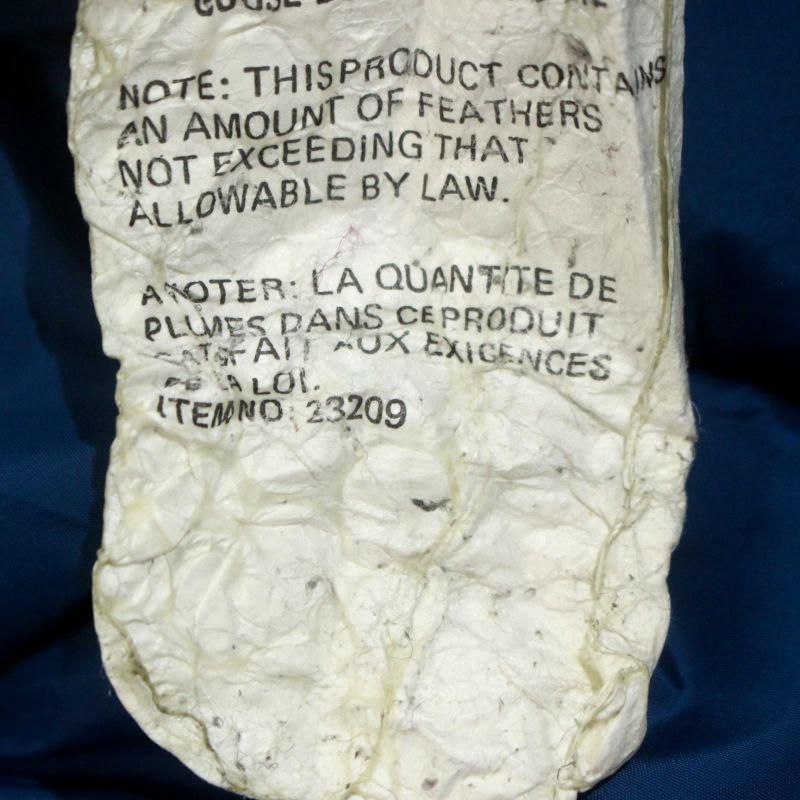 NOTE: THISPRODUCT CONTAINS
AN AMOUNT OF FEATHERS
NOT EXCEEDING THAT
ALLOWABLE BY LAW.
A NOTER: LA QUANTITE DE
PLUMES DANS CEPRODUIT
SATISFAIT AUX EXIGENCES
DE LA LOI.
ITEM NO: 23209